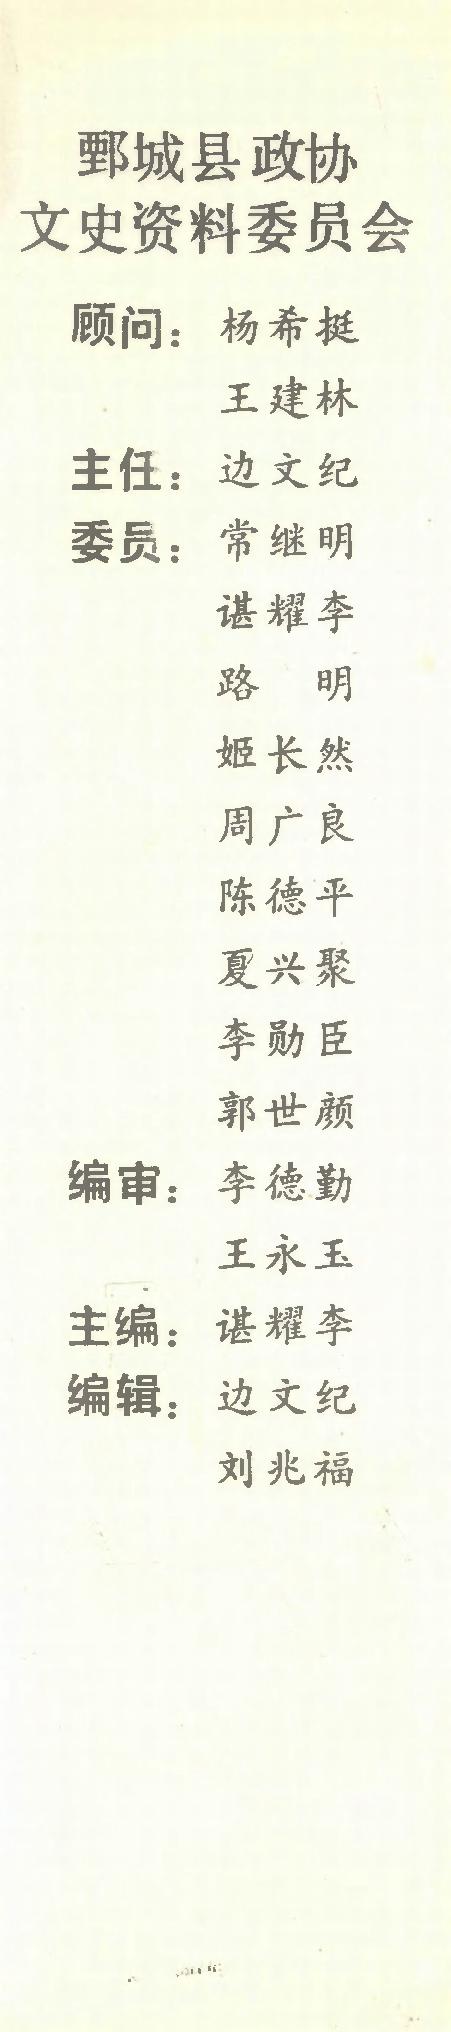 鄄城县政协
文史资料委员会
顾问：杨希挺
王建林
主任：边文纪
委员：常继明
谌耀李
路 明
姬长然
周广良
陈德平
夏兴聚
李勋臣
郭世颜
编审：李德勤
王永玉
主编：谌耀李
编辑：边文纪
刘兆福